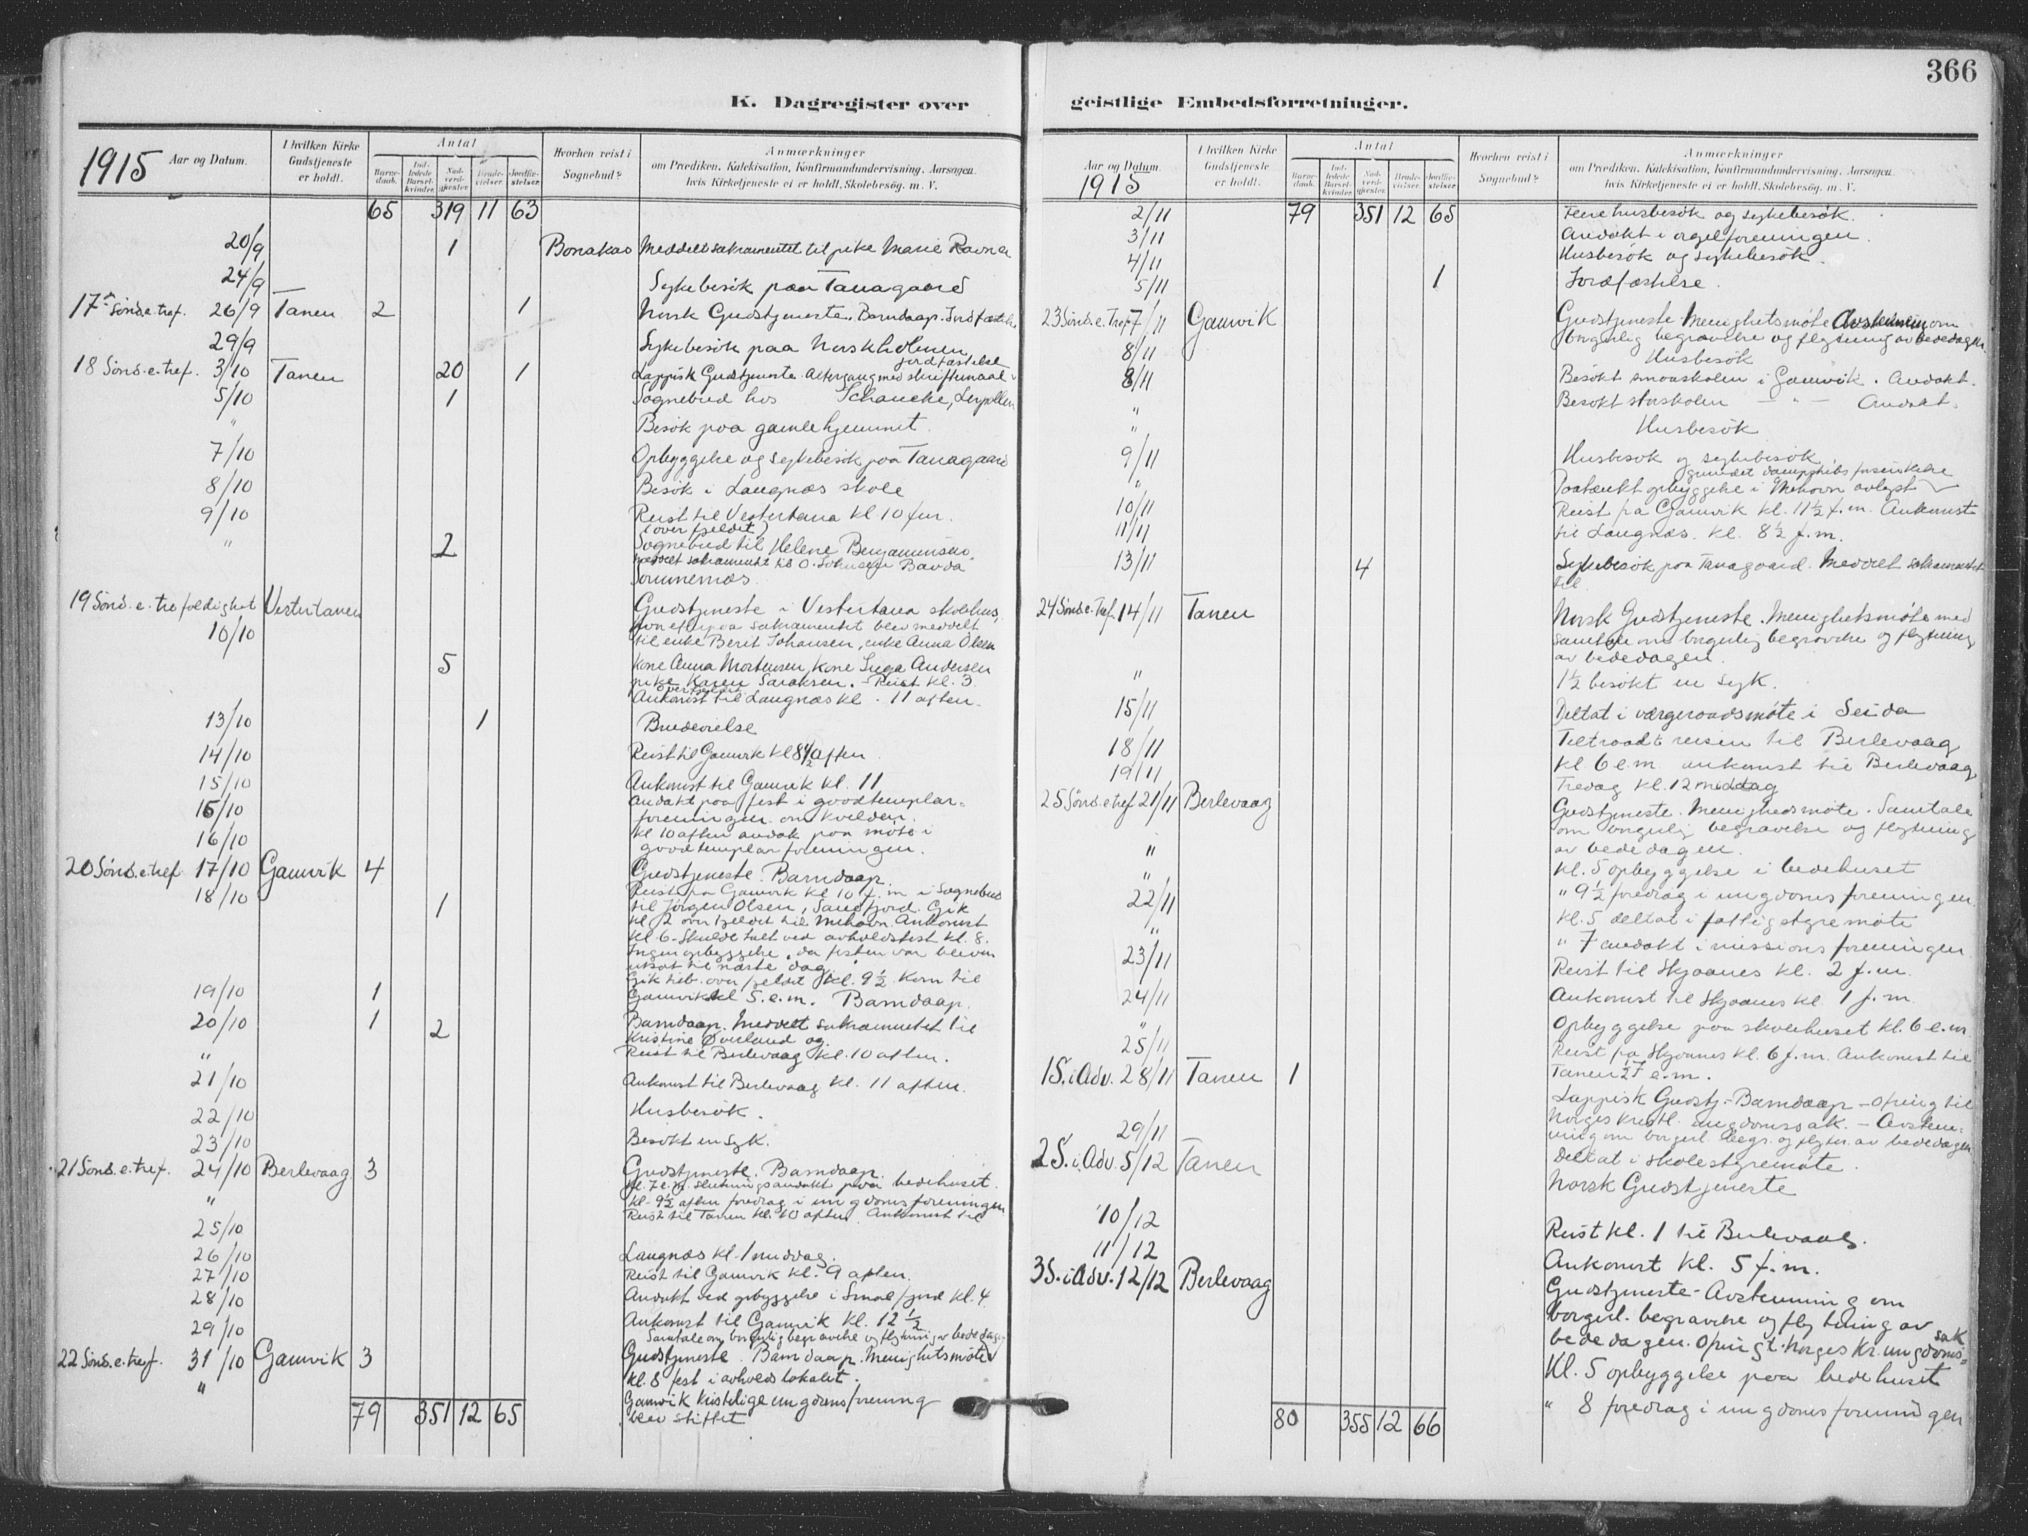 366
K. Dagregister over
geistlige Embedsforretninger.
1915
Aar og Datum.
I hvilken Kirke Gudstjeneste er holdt.
Antal
Barne-daab.
Ind-ledede Barsel-kvinder.
Nad-verd-gjester
Brude-vielser.
Jordfæ-stelser
Hvorhen reist i Sognebud?
Anmærkninger
om Prædiken, Katekisation, Konfirmandundervisning, Aarsagen,
hvis Kirketjeneste ei er holdt, Skolebesøg, m. V.
65 319 11 63
20/9 1 Bonakas Meddelt sakramentet til pike Marie Ravna
24/9 Sykebesök paa Tanagaard
17de Sönd. e. tref. 26/9 Tanen 2 1 Norsk Gudstjeneste. Barndaap. Jordfæstelse
29/9 Sykebesök paa Norskholmen
18 Sönd. e. tref. 3/10 Tanen 20 1 Lappisk Gudstjeneste. Altergang med skriftemaal. jordfæstelse
5/10 1 Sognebud hos Schancke, Leirpollen
" Besök paa gamlehjemmet.
7/10 Opbyggelse og sykebesök paa Tanagaard
8/10 Besök i Langnæs skole
9/10 Reist til Vestertana kl 10 fm.
(over fjeldet)
" 2 Sognebud til Helene Benjaminsen
meddelt sakramentet til O. Johnsen Bavda
Sommernæs.
19 Sönd. e. trefoldighet Vestertanen Gudstjeneste i Vestertana skolehus,
10/10 hvorefter paa sakramentet blev meddelt
til enke Berit Johansen, enke Anna Olsen
5 kone Anna Mortensen, kone Inga Andersen
pike Karen Saraksen. - Reist kl. 3
over fjeldet
Ankomst til Langnæs kl. 11 aften.
13/10 1 Brudevielse
14/10 Reist til Gamvik kl 8 1/2 aften
15/10 Ankomst til Gamvik kl. 11
15/10 Andakt paa fest i goodtemplar-
foreningen om kvelden.
16/10 kl 10 aften andak paa möte i
goodtemplarforeningen.
20 Sönd. e. tref 17/10 Gamvik 4 Gudstjeneste. Barndaap
18/10 1 Reist fra Gamvik kl 10 f. m i Sognebud
til Jörgen Olsen, Sandfjord. Gik
kl 2 over fjeldet til Mehavn. Ankomst
kl 6. Skulde talt ved avholdsfest kl. 8.
Ingen opbyggelse, da festen var bleven
utsat til næste dag.
19/10 1 Gik tilb. over fjeldet kl. 9 1/2 kom til
Gamvik kl 5. e. m. Barndaap.
20/10 1 2 Barndaap. Meddelt sakramentet til
Kristine Överland og
" Reist til Berlevaag kl. 10 aften.
21/10 Ankomst til Berlevaag kl. 11 aften.
22/10 Husbesök.
23/10 Besökt en syk.
21 Sönd. e. tref. 24/10 Berlevaag 3 Gudstjeneste. Barndaap
kl. 7 e. m. slutningsandakt paa bedehuset.
" kl. 9 1/2 aften foredrag i ungdomsforeningen
25/10 Reist til Tanen kl. 10 aften. Ankomst til
26/10 Langnæs kl. 1 middag.
27/10 Reist til Gamvik kl. 9 aften.
28/10 Andakt ved opbyggelse i Smalfjord kl. 4
29/10 Ankomst til Gamvik kl. 12 1/2
Samtale om borgerlig begravelse og flytning av bededagen
22 Sönd. e. tref. 31/10 Gamvik 3 Gudstjeneste. Barndaap. Menighetsmöte
" kl. 8 fest i avholdslokalet.
Gamvik kristelige ungdomsforening
blev stiftet
79 351 12 65
Aar og Datum
1915
I hvilken Kirke Gudstjeneste er holdt.
Antal
Barne-daab.
Ind-ledede Barsel-kvinder
Nad-verd-gjester
Brude-vielser.
Jordfæ-stelser
Hvorhen reist i Sognebud?
Anmærkninger
om Prædiken, Katekisation, Konfirmandundervisning, Aarsagen,
hvis Kirketjeneste ei er holdt, Skolebesög, m. V.
2/11 79 351 12 65 Flere husbesök og sykebesök.
3/11 Andakt i orgelforeningen.
4/11 Husbesök og sykebesök.
5/11 1 Jordfæstelse.
23 Sönd. e. Tref 7/11 Gamvik Gudstjeneste Menighetsmöte Avstemning om
borgerlig begravelse og flytning av bededagen
8/11 Husbesök
8/11 Besökt smaaskolen i Gamvik. Andakt.
" Besökt storskolen — " — Andakt.
Husbesök
9/11 Husbesök og sykebesök
grundet dampskibs forsinkelse
" Paatænkt opbyggelse i Mehavn avlyst
10/11 Reist fra Gamvik kl. 11 1/2 f. m. Ankomst
11/11 til Langnæs. kl. 8 1/2 f. m.
13/11 4 Sykebesök paa Tanagaard. Meddelt sakramentet
til
24 Sönd. e. Tref. 14/11 Tanen Norsk Gudstjeneste. Menighetsmöte med
samtale om borgerlig begravelse og flytning
av bededagen.
" 1 1/2 besökt en syk.
15/11 Deltat i værgeraadsmöte i Seida
18/11 Tiltraadt reisen til Berlevaag
19/11 kl 6 e. m. ankomst til Berlevaag
Fredag kl. 12 middag
25 Sönd. e. tref 21/11 Berlevaag Gudstjeneste. Menighedsmöte. Samtale
om borgerlig begravelse og flytning
av bededagen.
" kl. 5 opbyggelse i bedehuset
" " 9 1/2 foredrag i ungdomsforeningen.
22/11 kl. 5 deltat i fattigstyremöte
" " 7 andakt i missionsforeningen
23/11 Reist til Skjaanes kl. 2 f. m.
24/11 Ankomst til Skjaanes kl 1 f. m.
" Opbyggelse paa skolehuset kl. 6 e. m
25/11 Reist fra Skjaanes kl. 6 f. m. Ankomst til
Tanen 1/2 7 e. m.
1 S. i Adv. 28/11 Tanen 1 Lappisk Gudstj - Barndaap - ofring til
Norges kristl. ungdomssak. - Avstem-
ning om borgerl. begr. og flytn. av bededagen
29/11 Deltat i skolestyremöte.
2 S. i Adv. 5/12 Tanen Norsk Gudstjeneste
10/12 Reist kl. 1 til Berlevaag.
11/12 Ankomst kl. 5 f. m.
3 S. i Adv. 12/12 Berlevaag Gudstjeneste - Avstemning om
borgerl. begravelse og flytning av
bededagen. Ofring t. Norges kr. ungdoms-
sak
Kl. 5 opbyggelse paa bedehuset
" 8 foredrag i ungdomsforeningen
80 355 12 66